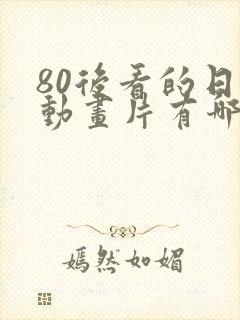 80後看的日
動畫片有哪
嫣然如媚